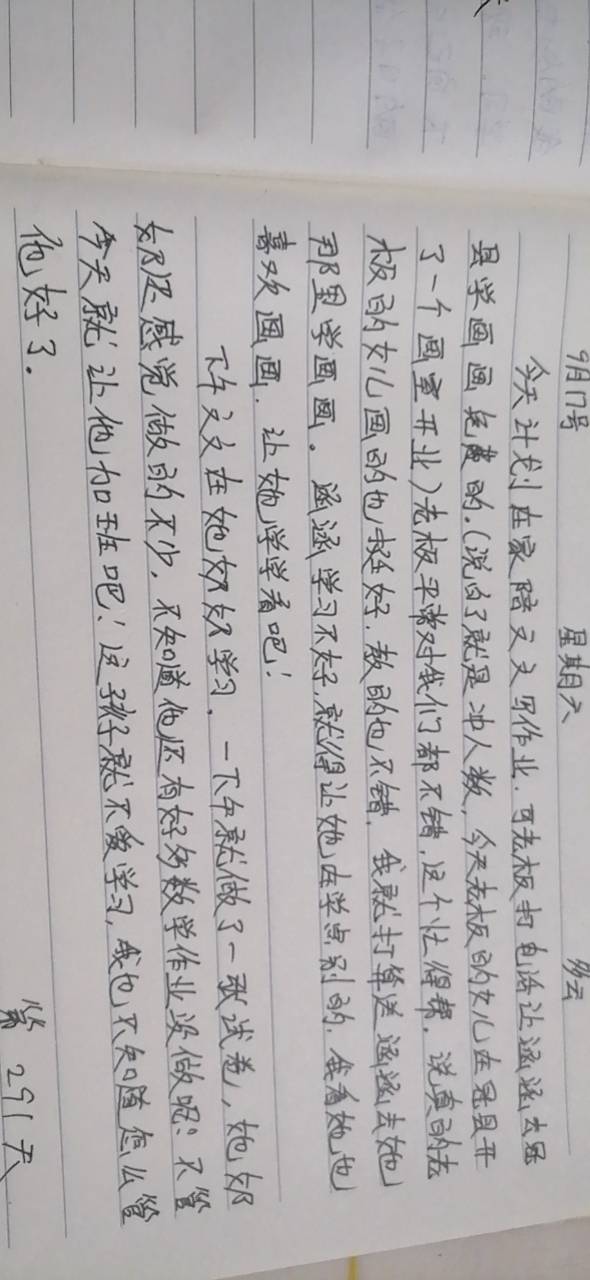 9月17号 星期六 多云
今天计划在家陪文文写作业.可老板打电话让涵涵去冠
县学画画免费的.(说白了就是冲人数,今天老板的女儿在冠县开
了一个画室开业)老板平常对我们都不错,这个忙得帮.说真的老
板的女儿画的也挺好,教的也不错,我就打算送涵涵去她
那里学画画。涵涵学习不好,就得让她在学点别的,我看她也
喜欢画画.让她学学看吧!
下午文文在她奶奶学习,一下午就做了一张试卷,她奶
奶还感觉做的不少,不知道他还有好多数学作业没做呢!不管
今天就让他加班吧!这孩子就不爱学习,我也不知道怎么管
他好了.
第291天